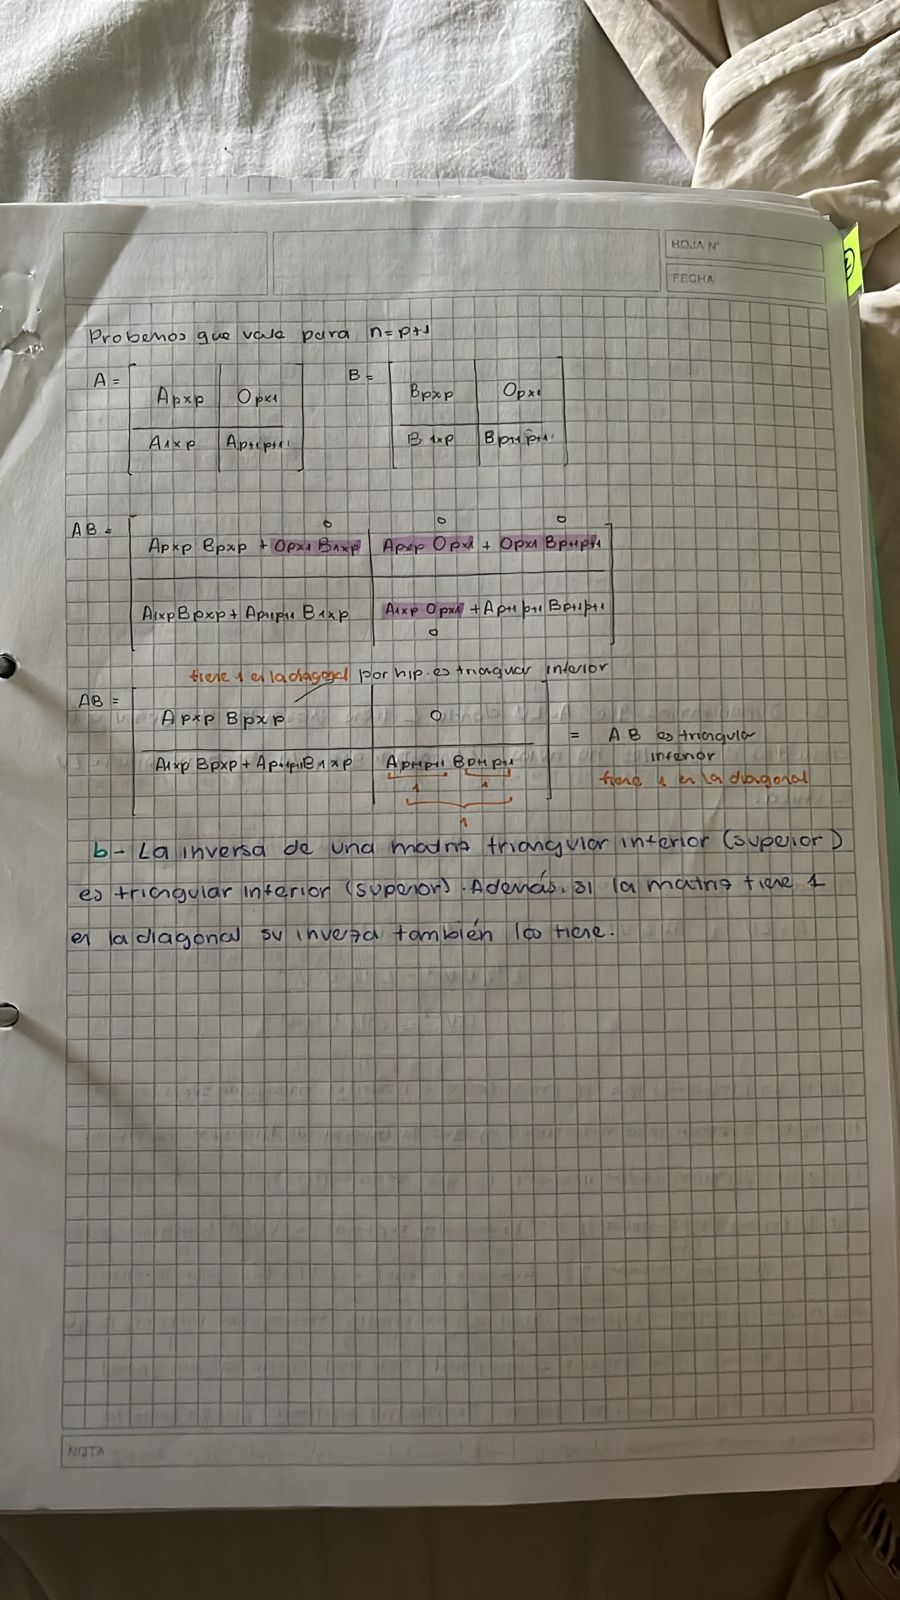 HOJA N°
FECHA
Probemos que vale para n=p+1
A = B =
Apxp Opx1 Bpxp Opx1
A1xp Ap+1p+1 B1xp Bp+1p+1
0 0 0
AB = Apxp Bpxp + Opx1 B1xp Apxp Opx1 + Opx1 Bp+1p+1
A1xpBpxp + Ap+1p+1 B1xp A1xp Opx1 + Ap+1p+1 Bp+1p+1
0
tiene 1 en la diagonal por hip. es triangular inferior
AB = Apxp Bpxp 0
= AB es triangular
inferior
A1xp Bpxp + Ap+1p+1B1xp Ap+1p+1 Bp+1p+1
tiene 1 en la diagonal
1 1
1
b- La inversa de una matriz triangular inferior (superior)
es triangular inferior (superior). Además, si la matriz tiene 1
en la diagonal su inversa también los tiene.
NOTA